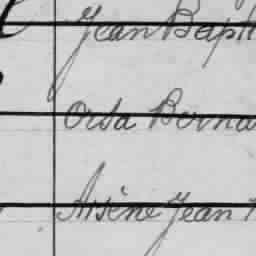 Jean Bapt
Orsa Berna
Arsène Jean